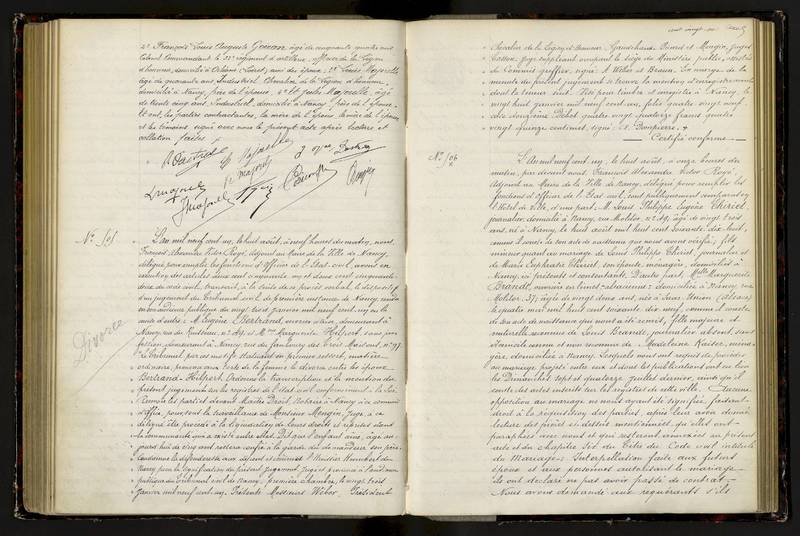 2o François Louis Auguste Gouvan âgé de cinquante quatre ans
Colonel Commandant le régiment d'artillerie, officier de la Légion
d'honneur, domicilié à Orléans (Loiret) ami des époux; 3o Louis Majorelle
âgé de quarante ans, Industriel, Chevalier de la Légion d'honneur,
domicilié à Nancy, frère de l'épouse; 4o et Jules Majorelle, âgé
de trente cinq ans, Industriel, domicilié à Nancy, frère de l'épouse
Et ont, les parties contractantes, la mère de l'époux, la mère de l'épouse
et les témoins signé avec nous le présent acte après lecture et
collation faites.
No 505
Divorce
L'an mil neuf cent un, le huit août, à neuf heures du matin, nous,
François Alexandre Victor Royé, Adjoint au Maire de la Ville de Nancy,
délégué pour remplir les fonctions d'Officier de l'Etat civil, avons en
exécution des articles deux cent cinquante un et deux cent cinquante
deux du code civil, transcrit, à la suite de ce procès verbal, le dispositif
d'un jugement du Tribunal civil de première instance de Nancy, rendu
en son audience publique du vingt trois janvier mil neuf cent un, en la
cause d'entre: M. Eugène Bertrand, ouvrier, demeurant à
Nancy, rue, No 29, et Mme Marguerite Hilpert, sans pro-
fession, demeurant à Nancy, rue du faubourg des Trois Maisons, No 97.
Le Tribunal par ces motifs Statuant en premier ressort, matière
ordinaire, prononce aux torts de la femme le divorce entre les époux
Bertrand-Hilpert. Ordonne la transcription et la mention du
présent jugement sur les registres de l'état civil conformément à la loi.
Renvoie les parties devant Maître Droit, Notaire à Nancy, à ce commis
d'office, pour, sous la surveillance de Monsieur Mengin, Juge, à ce
délégué être procédé à la liquidation de leurs droits et reprises dans
la communauté ayant existé entre elles. Dit que l'enfant, âgé au-
jourd'hui de cinq ans restera confié à la garde du demandeur son père.
Condamne la défenderesse aux dépens et commet l'Huissier
Nancy pour la signification du présent jugement. Jugé et prononcé à l'audience
publique du Tribunal civil de Nancy, première chambre, le vingt trois
Janvier mil neuf cent un. Présents Messieurs Weber, Président
Chevalier de la Légion d'Honneur, et Mengin, Juges
Juge suppléant occupant le siège du Ministère public, assistés
de commis greffier, signé: A Weber et Braun. En marge de la
minute du présent jugement se trouve la mention d'enregistrement
dont la teneur suit: Visé pour timbre et enregistré à Nancy, le
vingt huit janvier mil neuf cent un, folio quatre vingt neuf
case douzième. Débet quatre vingt quatorze francs quatre
vingt quinze centimes, signé: A. Dampierre.
Certifié conforme
No 506
L'An mil neuf cent un, le huit août, à onze heures du
matin, par devant nous, François Alexandre Victor Royé,
Adjoint au Maire de la Ville de Nancy, délégué pour remplir les
fonctions d'Officier de l'Etat civil, sont publiquement comparus en
l'Hôtel de Ville, d'une part, M. Louis Philippe Eugène Thiriet,
journalier, domicilié à Nancy, rue Molitor, No 49, âgé de vingt trois
ans, né à Nancy, le huit août mil huit cent soixante dix-huit,
comme il conste de son acte de naissance que nous avons vérifié; fils
mineur quant au mariage de Louis Philippe Thiriet, journalier et
de Marie Euphrasie Thiriet, son épouse, ménagère, domiciliés à
Nancy, ici présents et consentants. D'autre part, Melle Marguerite
Brandt, ouvrière en limes, domiciliée à Nancy, rue
Molitor, 37; âgée de vingt deux ans, née à Saar-Union (Alsace)
le quatre mai mil huit cent soixante dix neuf, comme il conste
de son acte de naissance qui nous a été remis, fille majeure et
naturelle reconnue de Louis Brandt, journalier absent, sans
domicile connu et non reconnue de Madeleine Kaiser, ména-
gère, domiciliée à Nancy. Lesquels nous ont requis de procéder
au mariage projeté entre eux et dont les publications ont eu lieu
les Dimanches sept et quatorze juillet dernier, ainsi qu'il
conste des actes inscrits sur les registres de cette ville. Aucune
opposition au mariage ne nous ayant été signifiée, faisant
droit à la réquisition des parties, après leur avoir donné
lecture des pièces ci-dessus mentionnées, qu'elles ont
paraphées avec nous et qui resteront annexées au présent
acte et du chapitre six du Titre du Code civil intitulé
du Mariage; Interpellation faite aux futurs
époux et aux personnes autorisant le mariage
ils ont déclaré ne pas avoir passé de contrat
Nous avons demandé aux requérants s'ils